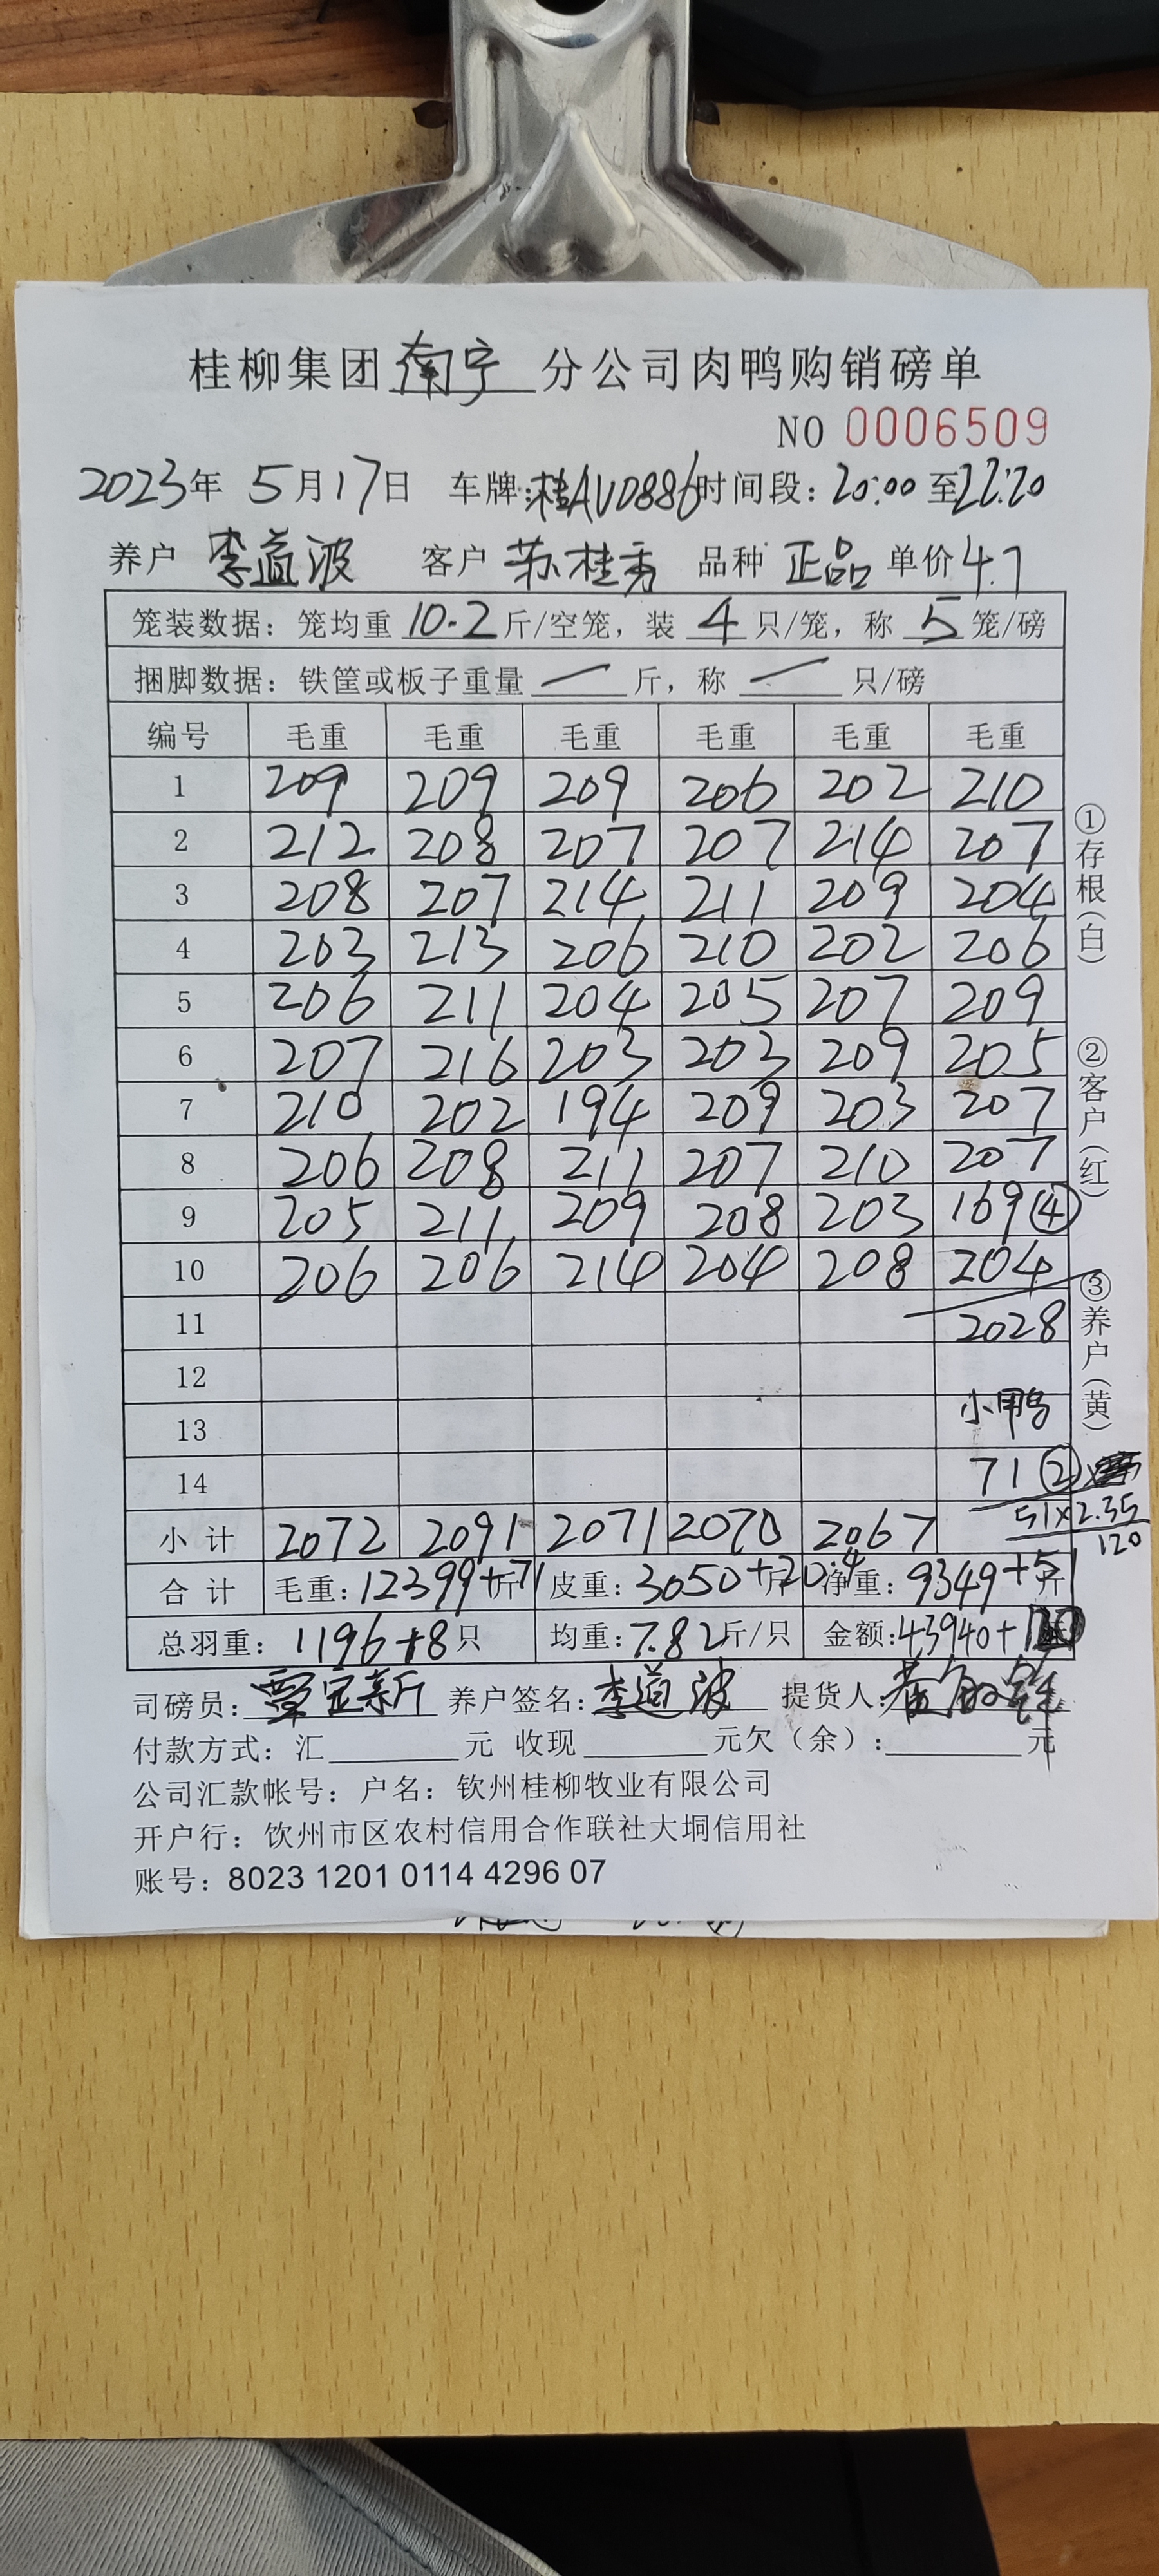 桂柳集团南宁分公司肉鸭购销磅单
NO 0006509
2023年 5月17日 车牌:桂AVD886 时间段:20:00至22:20
养户 李道波 客户 苏桂秀 品种 正品 单价4.7
笼装数据: 笼均重 10.2 斤/空笼, 装 4 只/笼, 称 5 笼/磅
捆脚数据: 铁筐或板子重量 — 斤, 称 — 只/磅
编号 毛重 毛重 毛重 毛重 毛重 毛重
1 209 209 209 206 202 210
2 212 208 207 207 214 207
3 208 207 214 211 209 204
4 203 213 206 210 202 206
5 206 211 204 205 207 209
6 207 216 203 203 209 205
7 210 202 194 209 203 207
8 206 208 211 207 210 207
9 205 211 209 208 203 169④
10 206 206 214 204 208 204
11 2028
12
13 小鸭
14 71②
51×2.35
120
小计 2072 2091 2071 2070 2067
合计 毛重:12399+71斤 皮重:3050+20.4斤 净重:9349+51斤
总羽重: 1196+8只 均重:7.82斤/只 金额:43940+120
司磅员:覃定新 养户签名:李道波 提货人:
付款方式: 汇 元 收现 元欠(余): 元
公司汇款帐号: 户名: 钦州桂柳牧业有限公司
开户行: 饮州市区农村信用合作联社大垌信用社
账号: 8023 1201 0114 4296 07
①存根(白)
②客户(红)
③养户(黄)